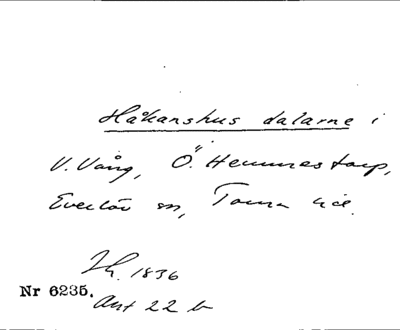 Håkanshus dalarne i
V. Vång, Ö. Hemmestorp,
Everlöv sn, Torna hd.
Jh. 1836
Nr 6235.
Ant 22 b